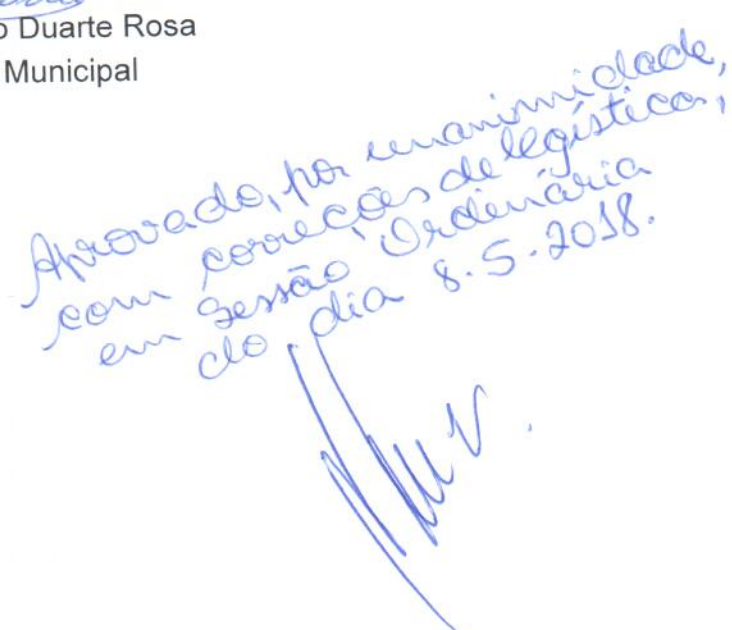 o Duarte Rosa
Municipal
Aprovado, por unanimidade,
com correções de legística,
em Sessão Ordinária
do dia 8.5.2018.